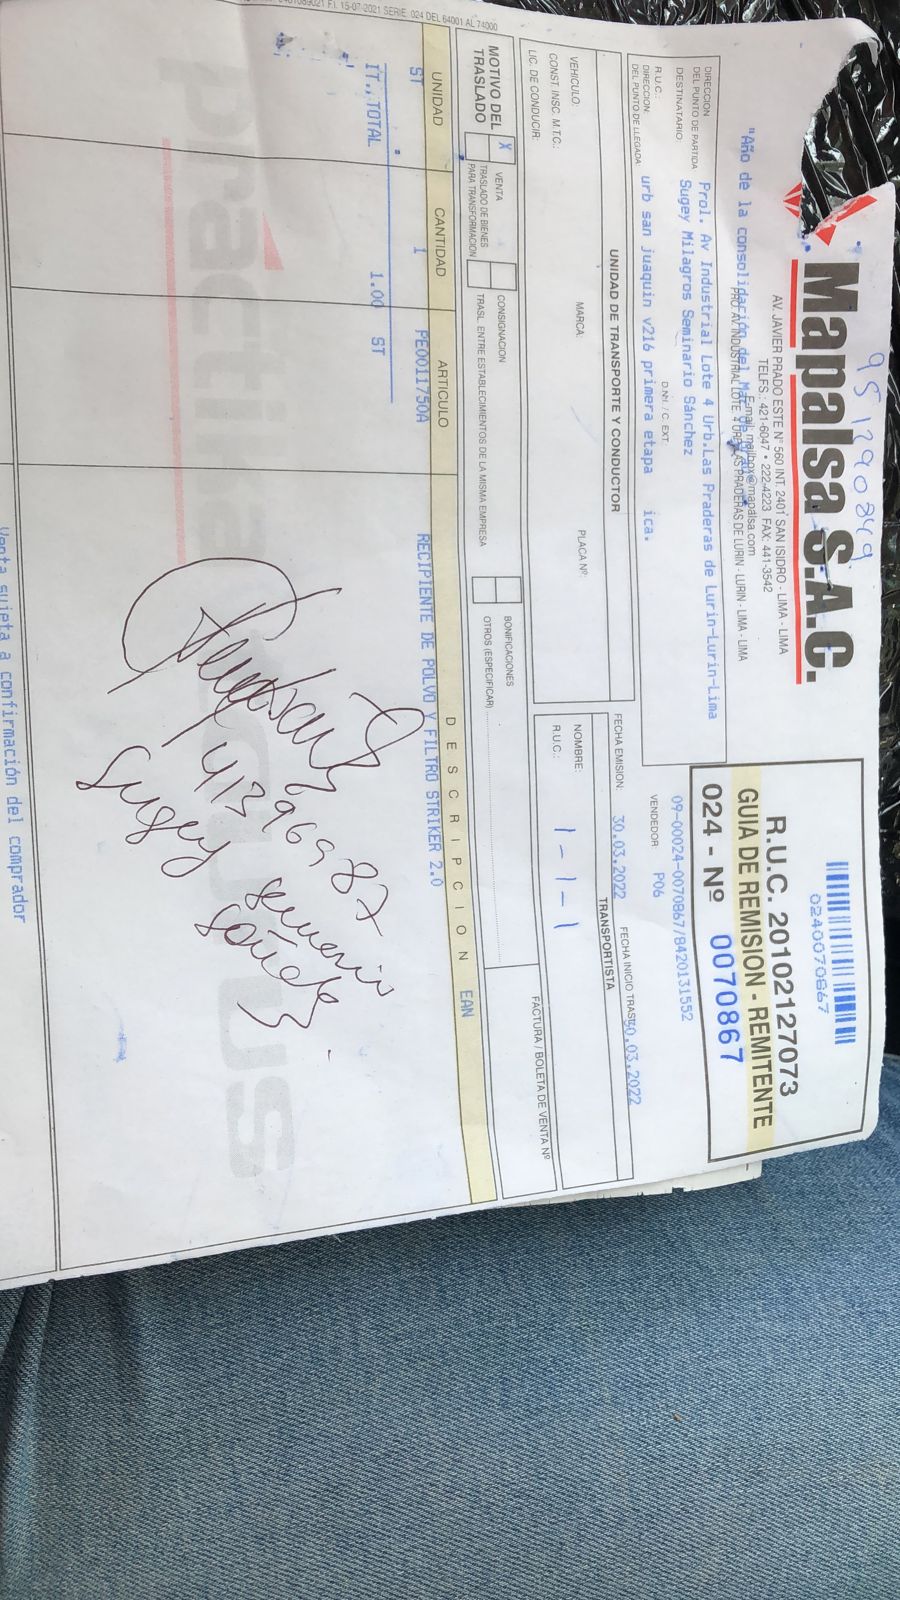 951790849
Mapalsa S.A.C.
AV. JAVIER PRADO ESTE N° 560 INT. 2401 SAN ISIDRO - LIMA - LIMA
TELFS.: 421-6047 • 222-4223 FAX: 441-3542
E-mail: mailbox@mapalsa.com
PRO. AV. INDUSTRIAL LOTE 4 URB. LAS PRADERAS DE LURIN - LURIN - LIMA - LIMA
"Año de la consolidación del Mar de
0240070867
R.U.C. 20102127073
GUIA DE REMISION - REMITENTE
024 - Nº 0070867
09-00024-0070867/8420131552
DIRECCION DEL PUNTO DE PARTIDA Prol. Av Industrial Lote 4 Urb.Las Praderas de Lurin-Lurin-Lima
DESTINATARIO: Sugey Milagros Seminario Sánchez
R.U.C.: D.N.I. / C. EXT.
DIRECCION DEL PUNTO DE LLEGADA: urb san juaquin v216 primera etapa ica.
VENDEDOR: P06
FECHA EMISION: 30.03.2022 FECHA INICIO TRAS 30.03.2022
UNIDAD DE TRANSPORTE Y CONDUCTOR
VEHICULO: MARCA: PLACA Nº:
CONST. INSC. M.T.C.:
LIC. DE CONDUCIR:
TRANSPORTISTA
NOMBRE:
R.U.C.: 1-1-1
MOTIVO DEL TRASLADO
X VENTA
TRASLADO DE BIENES PARA TRANSFORMACION
CONSIGNACION
TRASL. ENTRE ESTABLECIMIENTOS DE LA MISMA EMPRESA
BONIFICACIONES
OTROS (ESPECIFICAR)
FACTURA / BOLETA DE VENTA Nº
UNIDAD CANTIDAD ARTICULO D E S C R I P C I O N EAN
ST 1 PE0011750A RECIPIENTE DE POLVO Y FILTRO STRIKER 2.0
IT., TOTAL 1.00 ST
41396987
Sugey Seminario
Sánchez
Venta sujeta a confirmación del comprador
F.I. 15-07-2021 SERIE. 024 DEL 64001 AL 74000